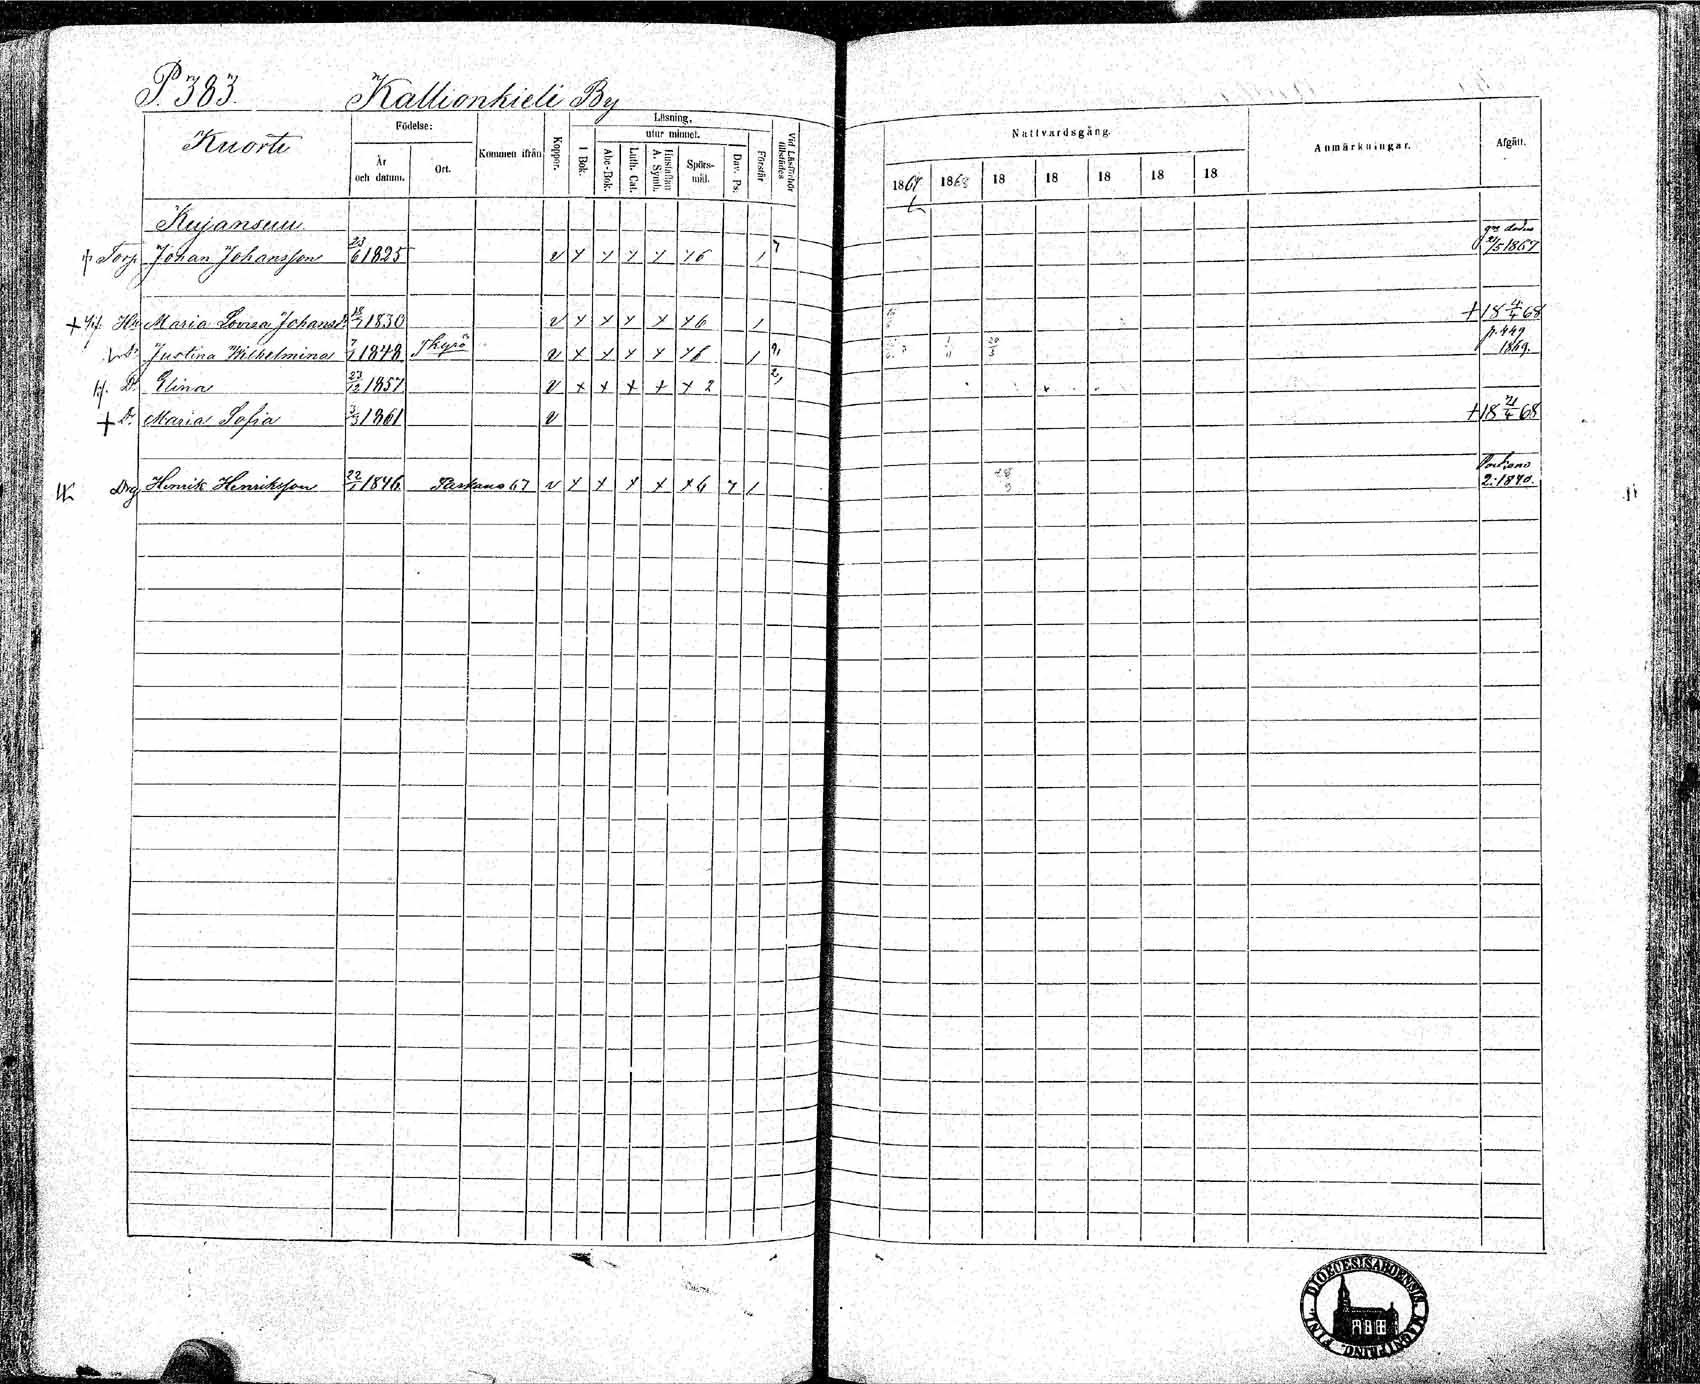 P. 383. Kallionkieli By
Kuorti
Födelse:
År och datum.
Ort.
Kommen ifrån
Koppor.
Läsning,
I Bok.
utur minnet.
Abc-Bok.
Luth. Cat.
Hustaflan A. Symb.
Spörsmål.
Dav. Ps.
Förstår
Vid Läsförhör tillstädes
Nattvardsgång.
1867 1868 18 18 18 18 18
Anmärkningar.
Afgått.
Kujansuu
Torp. Johan Johansson 23/6 1825 v x x x x x 6 1 21/5 1867
Hu Maria Lovisa Johansd. 18/7 1830 v x x x x x 6 1 + 18 4/4 68
D. Justina Wilhelmina 7/1 1848 Ikyrö v x x x x x 6 1 p. 449 1869.
D. Elina 23/12 1857 v x x x x x 2
+ D. Maria Sofia 3/3 1861 v + 18 21/4 68
Drg Henrik Henriksson 22/1 1846 Parkano 67 v x x x x x 6 1 Parkano 2: 1870.
DIOECESIS ABOENSIS MAGNI PRINC. FINL.